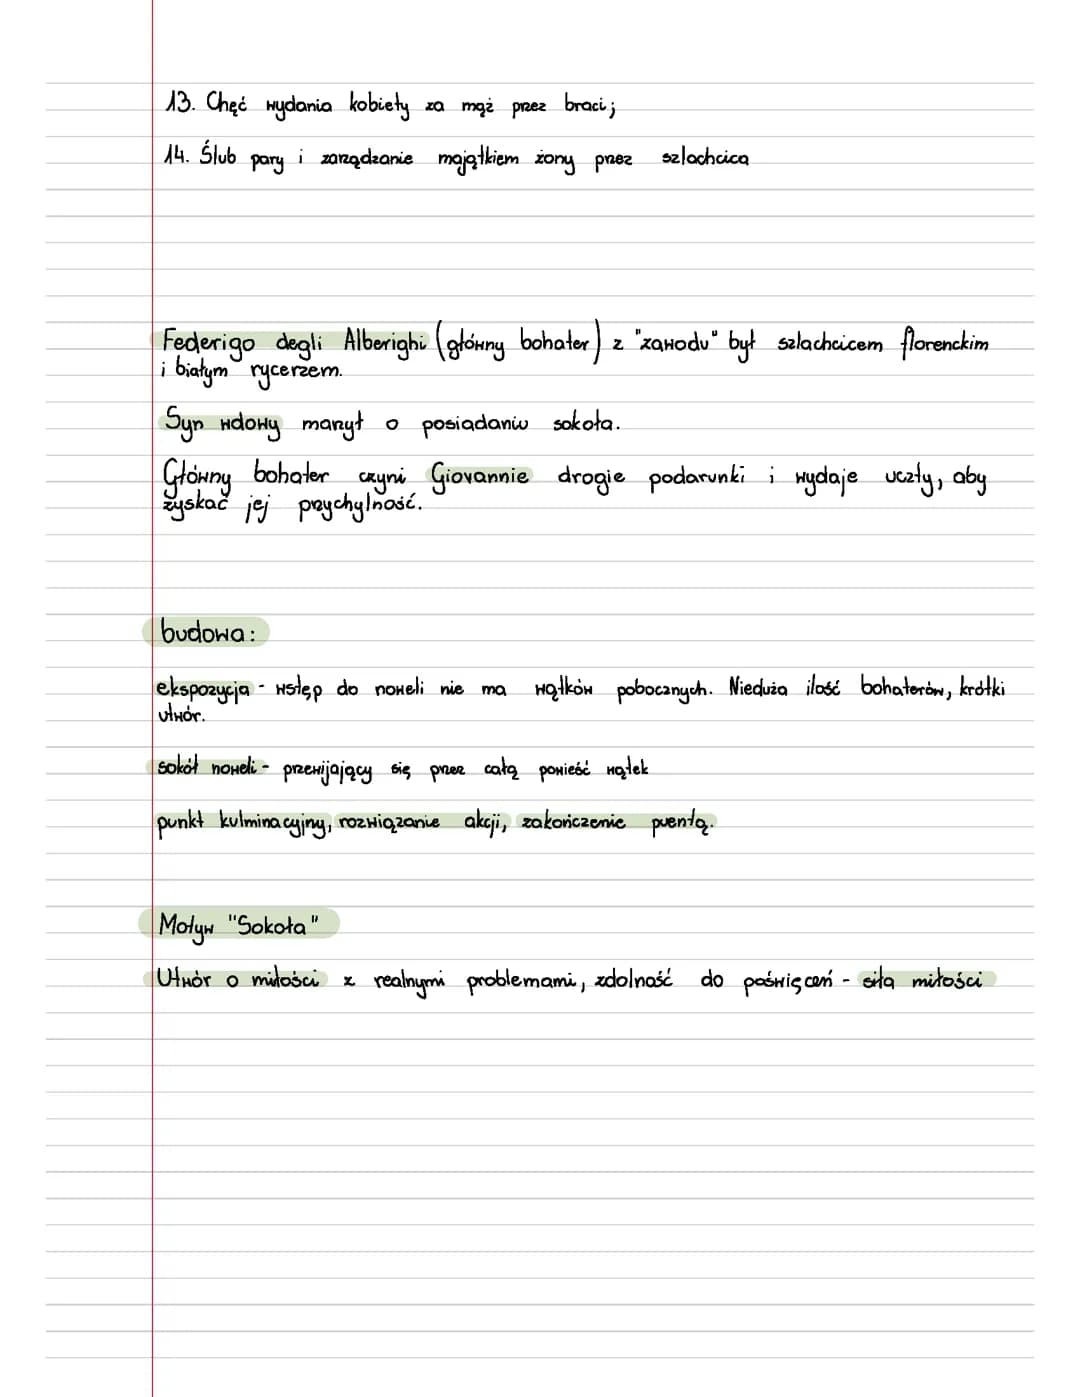 13. Chęć wydania kobiety za mąż przez braci;
14. Ślub pary i zarządzanie majątkiem żony przez szlachcica
Federigo degli Alberighi (główny bohater) z "zawodu" był szlachcicem florenckim
i białym rycerzem.
Syn wdowy marzył o posiadaniu sokoła.
Główny bohater czyni Giovannie drogie podarunki i wydaje uczty, aby
zyskać jej przychylność.
budowa:
ekspozycja - wstęp do noweli nie ma wątków pobocznych. Nieduża ilość bohaterów, krótki
utwór.
sokół noweli - przewijający się przez całą powieść wątek
punkt kulminacyjny, rozwiązanie akcji, zakończenie puentą.
Motyw "Sokoła"
Utwór o miłości z realnymi problemami, zdolność do poświęceń - siła miłości